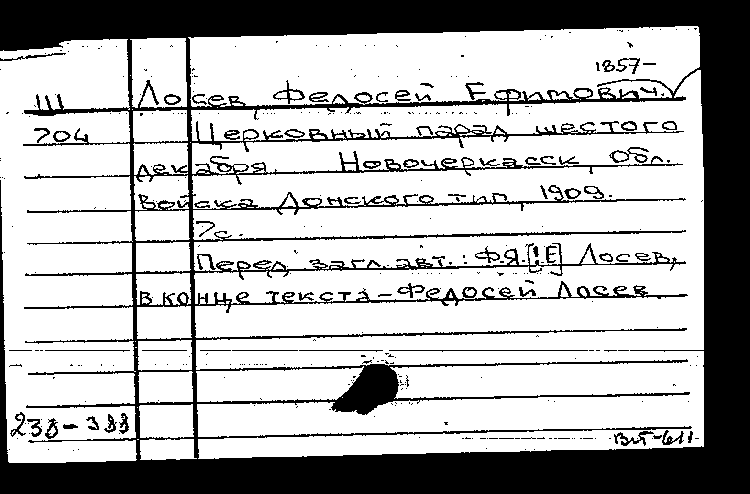 1857-
III Лосев, Федосей Ефимович.
704 Церковный парад шестого
декабря. Новочеркасск, Обл.
Войска Донского тип, 1909.
7с.
Перед загл. авт.: Ф.Я.[!Е] Лосев,
в конце текста - Федосей Лосев.
238-388